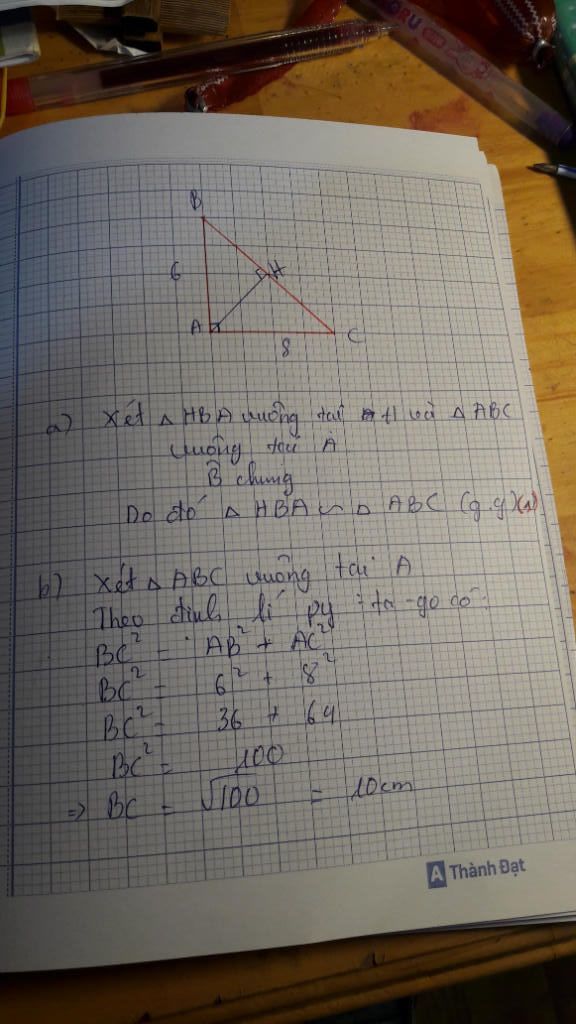 ORU
B
6
H
A
C
8
a) Xét △ HBA vuông tại H và △ ABC
vuông tại A
B̂ chung
Do đó △ HBA ∽ △ ABC (g.g)(1)
b) Xét △ ABC vuông tại A
Theo định lí py-ta-go có:
BC² = AB² + AC²
BC² = 6² + 8²
BC² = 36 + 64
BC² = 100
⇒ BC = √100 = 10cm
A Thành Đạt